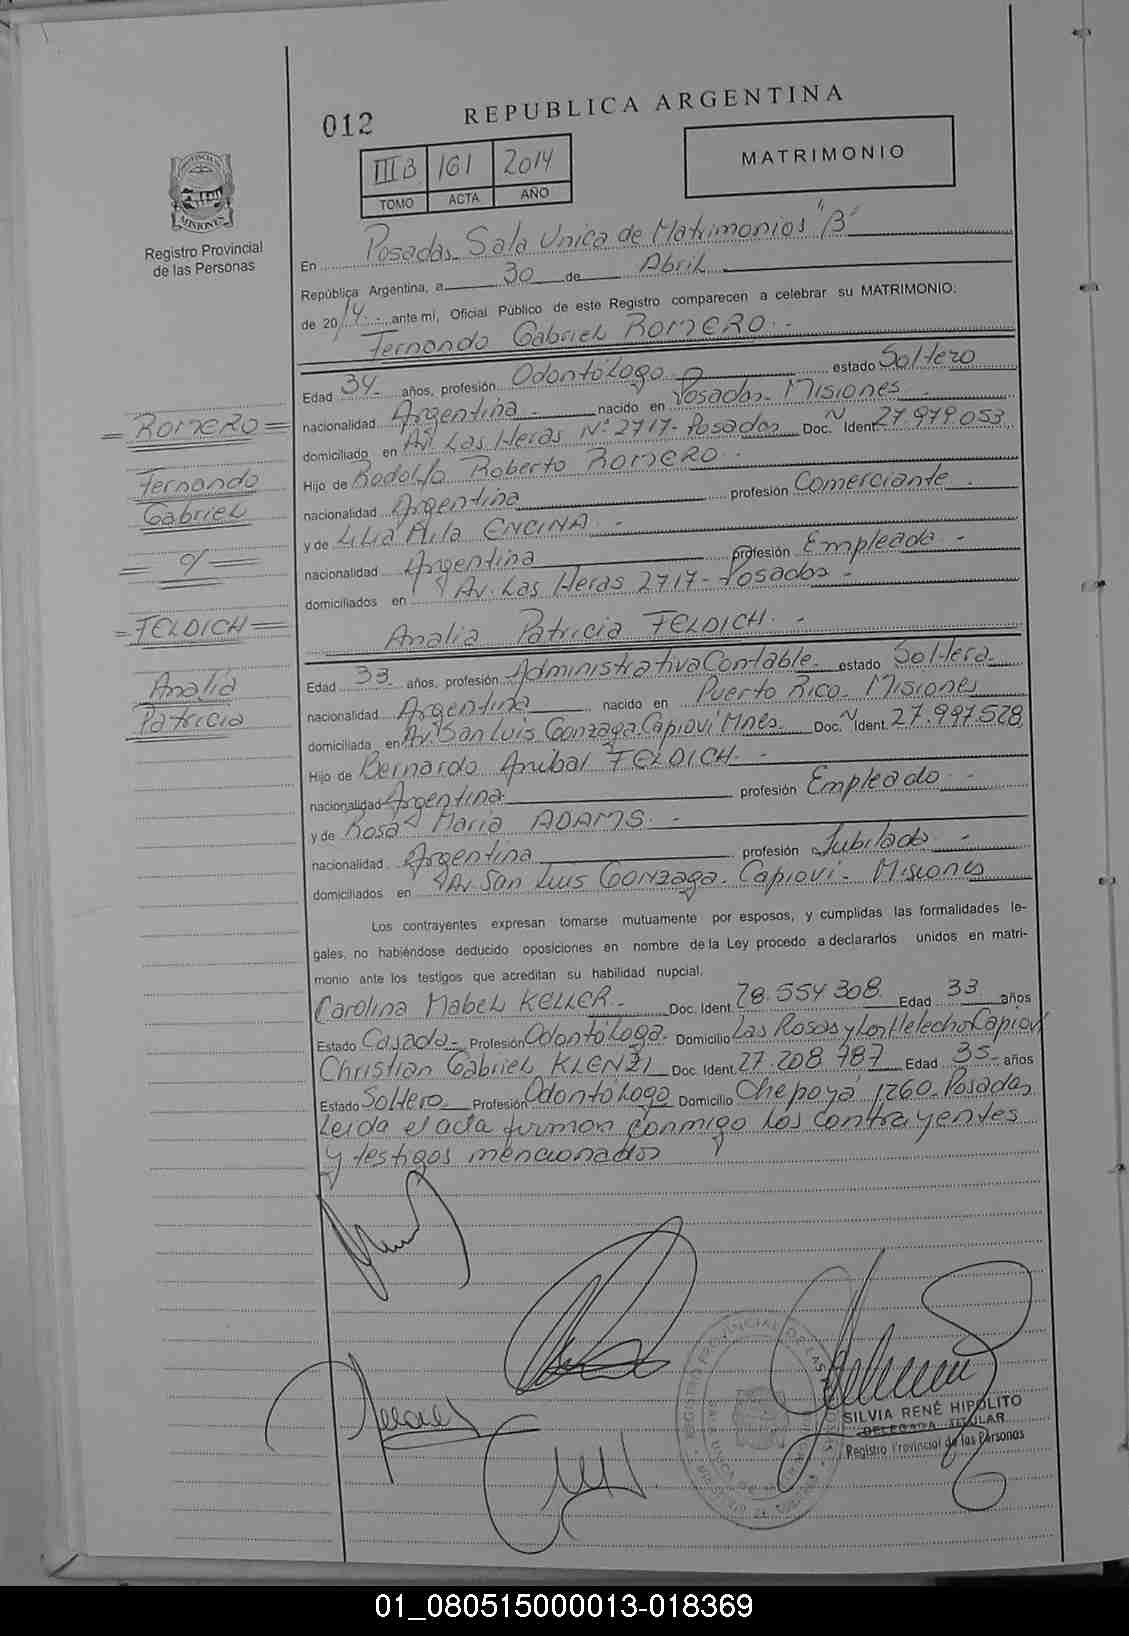 012 REPUBLICA ARGENTINA
III B 161 2014
TOMO ACTA AÑO
MATRIMONIO
PROVINCIA DE
MISIONES
Registro Provincial
de las Personas
En Posadas Sala Unica de Matrimonios "B"
República Argentina, a 30 de Abril
de 2014.- ante mí, Oficial Público de este Registro comparecen a celebrar su MATRIMONIO:
Fernando Gabriel ROMERO.-
Edad 34 años, profesión Odontólogo estado Soltero
nacionalidad Argentina.- nacido en Posadas- Misiones
domiciliado en Av. Las Heras Nº 2717- Posadas Doc. Ident. 27.979.053
Hijo de Rodolfo Roberto ROMERO.-
nacionalidad Argentina profesión Comerciante.
y de Lilia Aila ENCINA.-
nacionalidad Argentina profesión Empleada.-
domiciliados en Av. Las Heras 2717- Posadas.-
Analia Patricia FELDICH.-
Edad 33 años, profesión Administrativa Contable. estado Soltera
nacionalidad Argentina nacido en Puerto Rico- Misiones
domiciliada en Av. San Luis Gonzaga. Capiovi Mnes. Doc. Ident. 27.997.528
Hijo de Bernardo Anibal FELDICH.-
nacionalidad Argentina profesión Empleado.-
y de Rosa Maria ADAMS.-
nacionalidad Argentina profesión Jubilada.-
domiciliados en Av. San Luis Gonzaga. Capiovi- Misiones
Los contrayentes expresan tomarse mutuamente por esposos, y cumplidas las formalidades le-
gales, no habiéndose deducido oposiciones en nombre de la Ley procedo a declararlos unidos en matri-
monio ante los testigos que acreditan su habilidad nupcial.
Carolina Mabel KELLER.- Doc. Ident. 28.554 308 Edad 33 años
Estado Casada- Profesión Odontóloga. Domicilio Las Rosas y Los Helechos Capiovi
Christian Gabriel KLENZI Doc. Ident. 27.208 787 Edad 35- años
Estado Soltero Profesión Odontólogo Domicilio Chepoyá 1260- Posadas
Leida el acta firman conmigo los contrayentes
y testigos mencionados
= ROMERO =
Fernando
Gabriel
= o/ =
= FELDICH =
Analia
Patricia
SILVIA RENÉ HIPÓLITO
DELEGADA TITULAR
Registro Provincial de las Personas
01_080515000013-018369